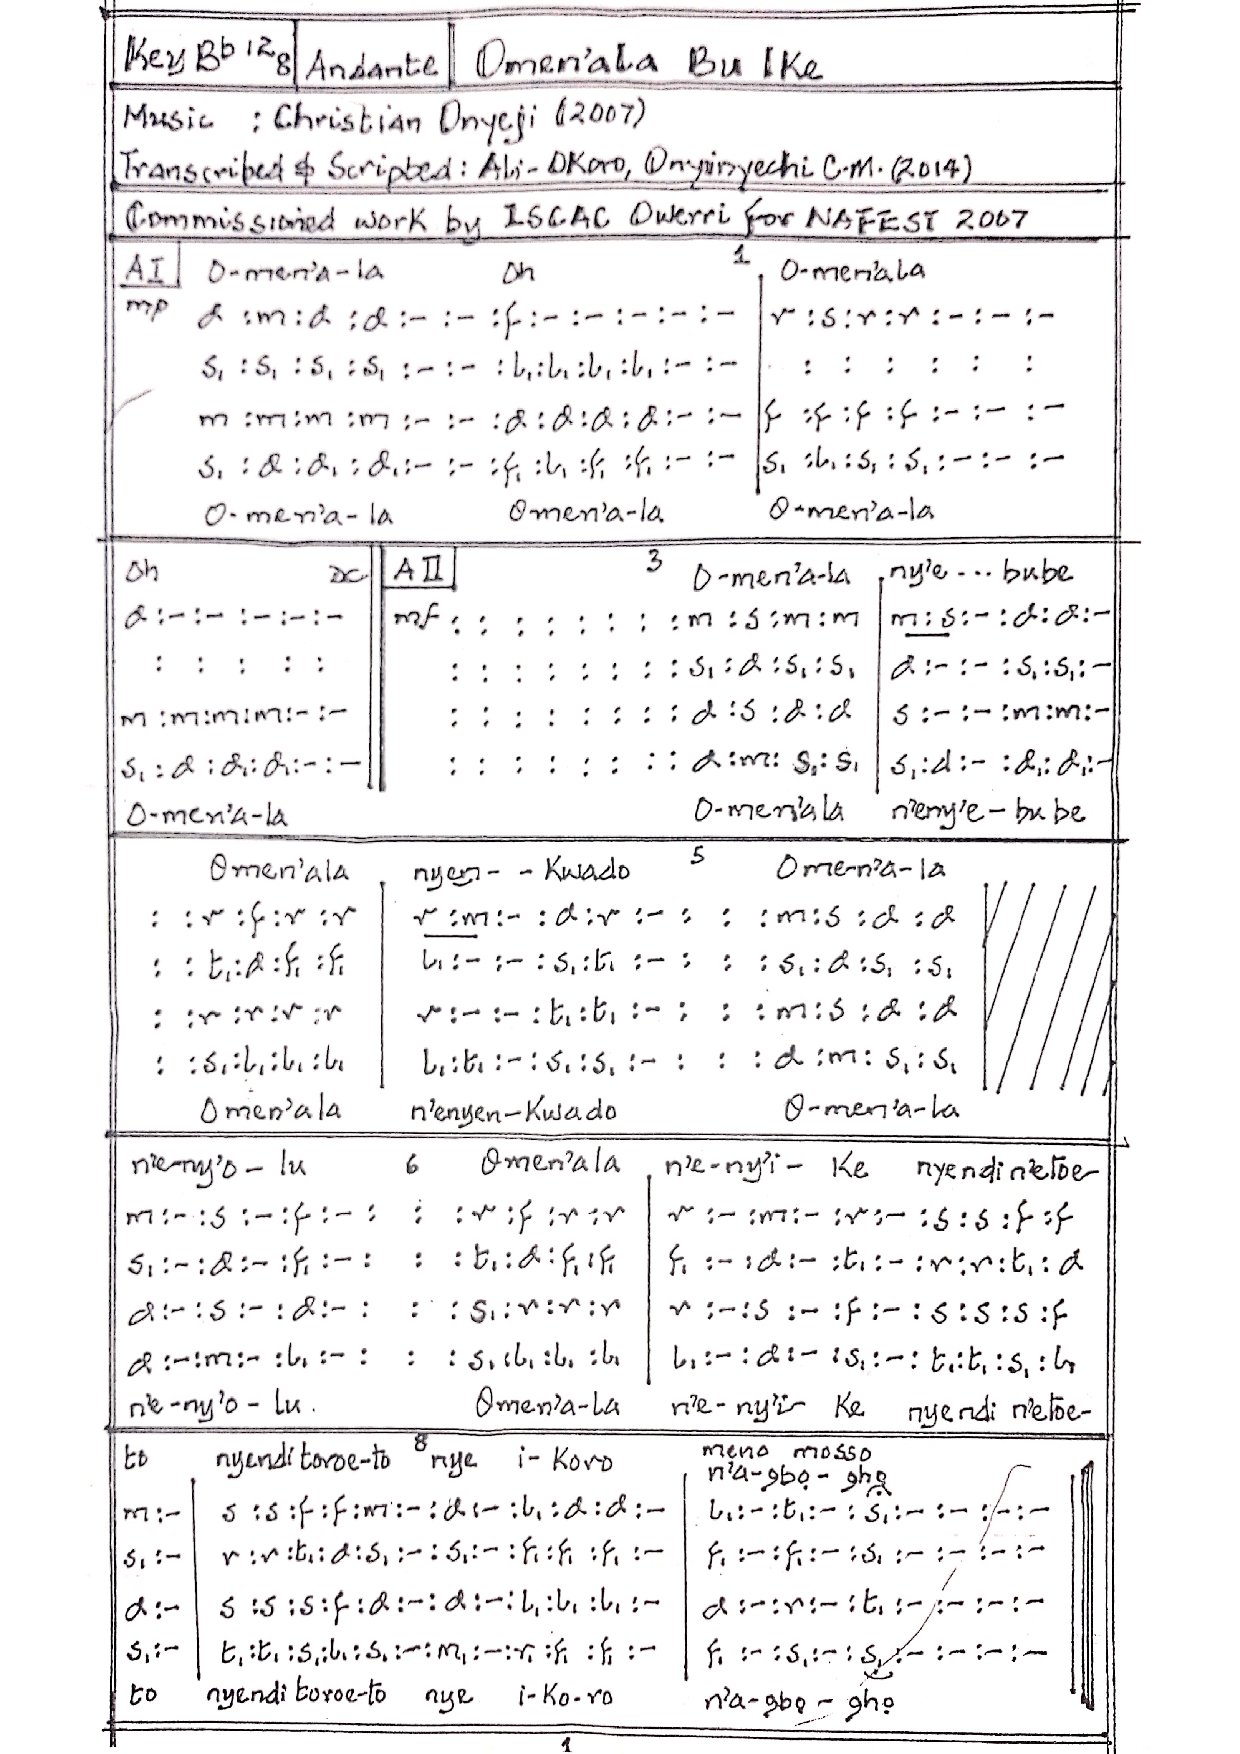 Key Bb 12 8 Andante Omen'ala Bu Ike
Music : Christian Onyeji (2007)
Transcribed & Scripted: Ali-Okoro, Onyinyechi C.M. (2014)
Commissioned work by ISCAC Owerri for NAFEST 2007
AI O-men'a-la Oh 1 O-men'ala
mp d :m :d :d :- :- :f :- :- :- :- :- r :s :r :r :- :- :-
s₁ :s₁ :s₁ :s₁ :- :- :l₁ :l₁ :l₁ :l₁ :- :- : : : : : :
m :m :m :m :- :- :d :d :d :d :- :- f :f :f :f :- :- :-
s₁ :d :d₁ :d₁ :- :- :f₁ :l₁ :f₁ :f₁ :- :- s₁ :l₁ :s₁ :s₁ :- :- :-
O-men'a-la Omen'a-la O-men'a-la
Oh DC AII 3 O-men'a-la ny'e ... bube
d :- :- :- :- :- mf : : : : : : : : m :s :m :m m :s :- :d :d :-
: : : : : : : : : : : : : s₁ :d :s₁ :s₁ d :- :- :s₁ :s₁ :-
m :m :m :m :- :- : : : : : : : : d :s :d :d s :- :- :m :m :-
s₁ :d :d₁ :d₁ :- :- : : : : : : : : d :m : s₁ :s₁ s₁ :d :- :d₁ :d₁ :-
O-men'a-la O-men'ala n'eny'e-bube
Omen'ala nyen- - Kwado 5 Omen'a-la
: :r :f :r :r r :m :- :d :r :- : : :m :s :d :d
: :t₁ :d :f₁ :f₁ l₁ :- :- :s₁ :t₁ :- : : :s₁ :d :s₁ :s₁
: :r :r :r :r r :- :- :t₁ :t₁ :- : : :m :s :d :d
: :s₁ :l₁ :l₁ :l₁ l₁ :t₁ :- :s₁ :s₁ :- : : : d :m : s₁ :s₁
Omen'ala n'enyen-Kwado O-men'a-la
n'e-ny'o-lu 6 Omen'ala n'e-ny'i- Ke nyendi n'etoe-
m :- :s :- :f :- : : :r :f :r :r r :- :m :- :r :- :s :s :f :f
s₁ :- :d :- :f₁ :- : : :t₁ :d :f₁ :f₁ f₁ :- :d :- :t₁ :- :r :r :t₁ :d
d :- :s :- :d :- : : :s₁ :r :r :r r :- :s :- :f :- :s :s :s :f
d :- :m :- :l₁ :- : : :s₁ :l₁ :l₁ :l₁ l₁ :- :d :- :s₁ :- :t₁ :t₁ :s₁ :l₁
n'e-ny'o-lu. Omen'a-La n'e-ny'i- Ke nyendi n'etoe-
to nyendi toroe-to 8 nye i-Koro meno mosso
n'a-gbọ-ghọ
m :- s :s :f :f :m :- :d :- :l₁ :d :d :- l₁ :- :t₁ :- :s₁ :- :- :- :-
s₁ :- r :r :t₁ :d :s₁ :- :s₁ :- :f₁ :f₁ :f₁ :- f₁ :- :f₁ :- :s₁ :- :- :- :-
d :- s :s :s :f :d :- :d :- :l₁ :l₁ :l₁ :- d :- :r :- :t₁ :- :- :- :-
s₁ :- t₁ :t₁ :s₁ :l₁ :s₁ :- :m₁ :- :r₁ :f₁ :f₁ :- f₁ :- :s₁ :- :s₁ :- :- :- :-
to nyendi toroe-to nye i-Ko-ro n'a-gbọ-ghọ
1